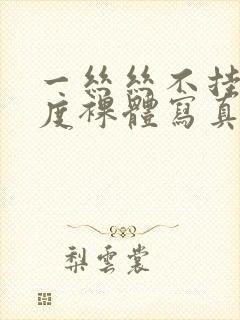 一絲絲不挂
度裸體寫真
梨雲裳